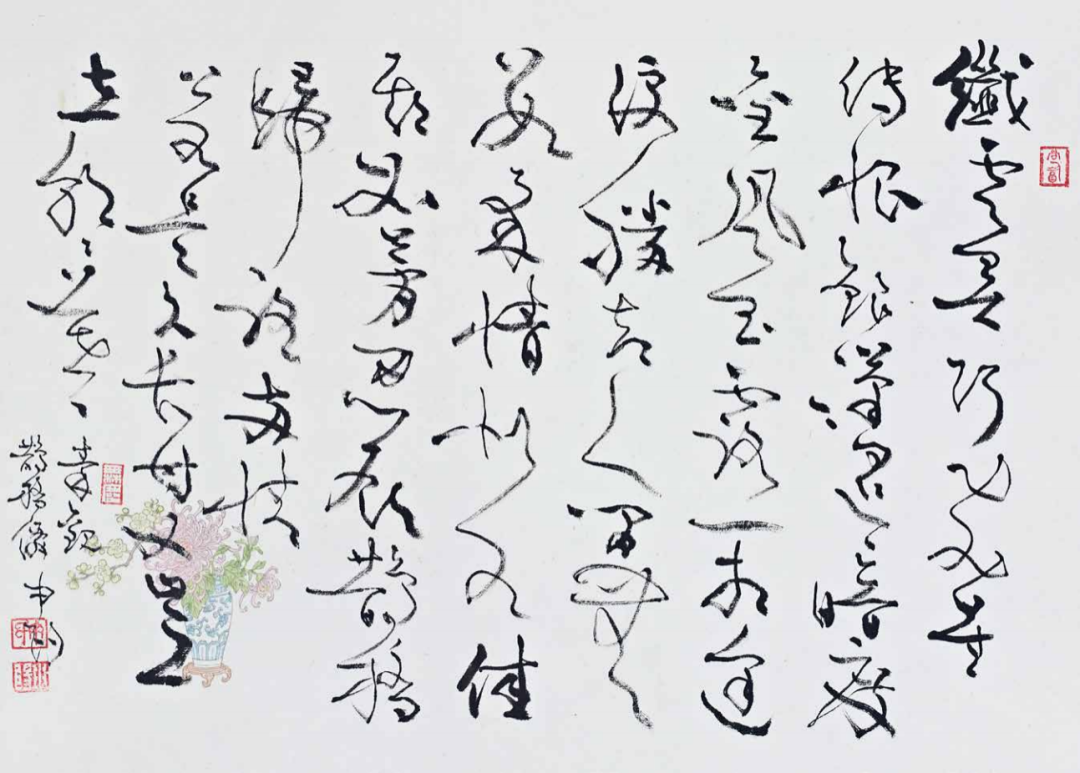 纖雲弄巧飛星
傳恨銀漢迢迢暗度
金風玉露一相逢
便勝却人間無
數柔情似水佳
期如夢忍顧鵲橋
歸路兩情
若是久長時又豈
在朝朝暮暮
秦觀
鵲橋仙